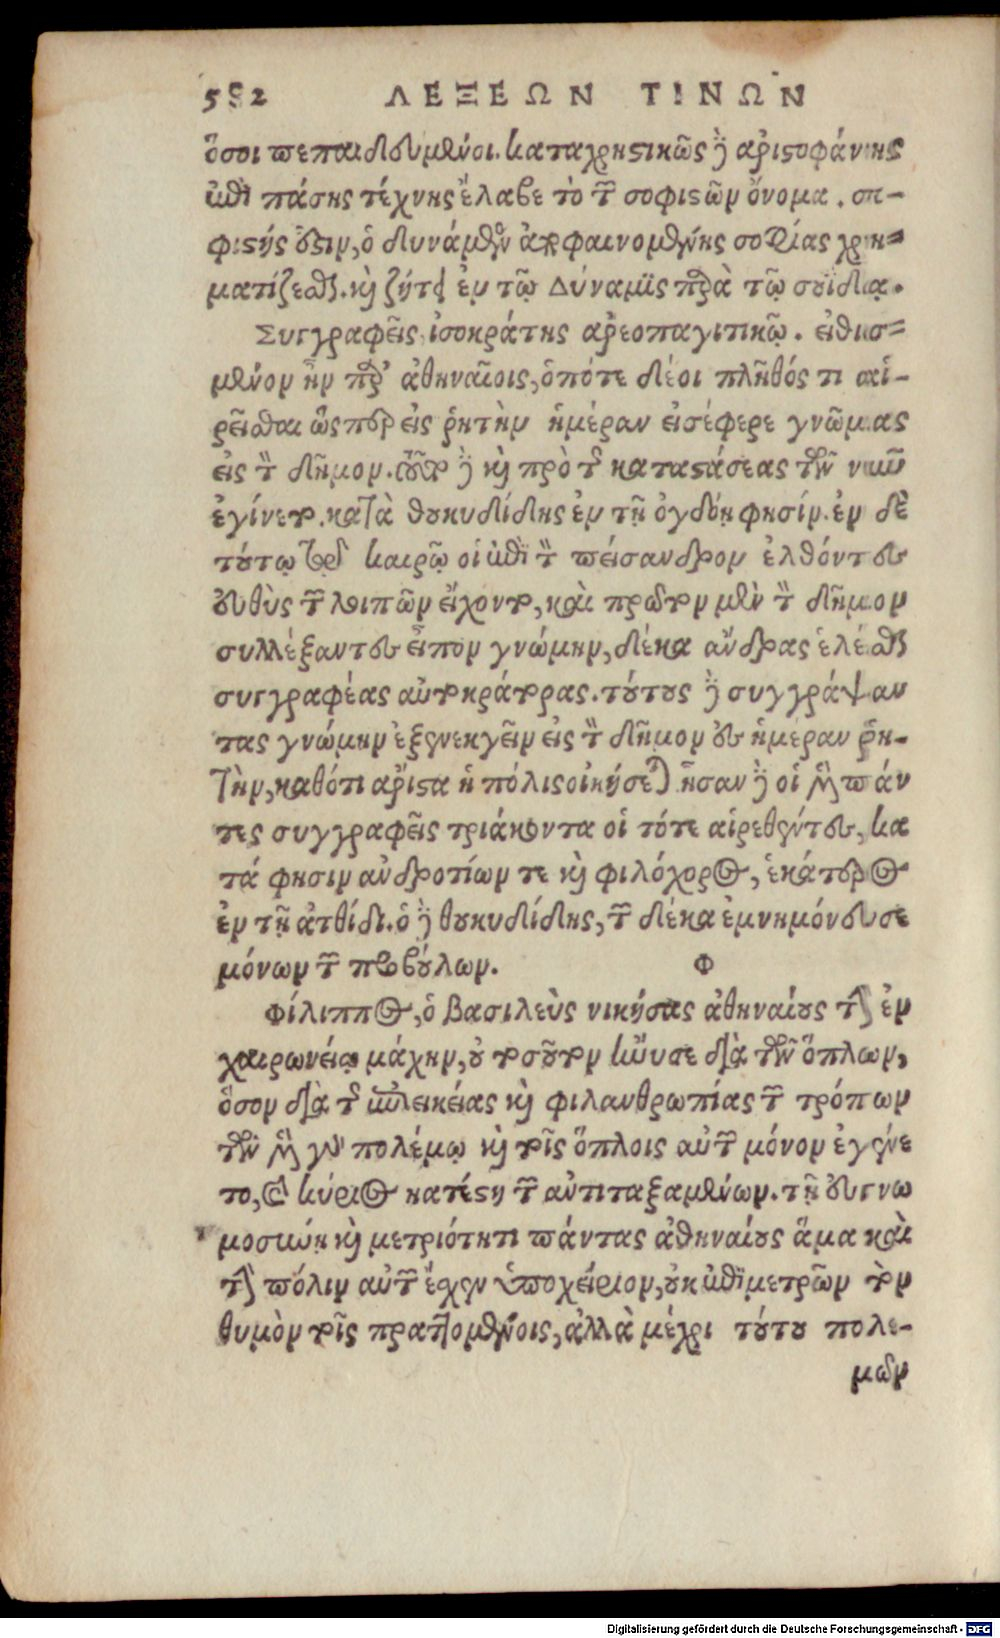 582 ΛΕΞΕΩΝ ΤΙΝΩΝ
ὅσοι πεπαιδευμένοι. καταχρηστικῶς δὲ ἀριστοφάνης
ἐπὶ πάσης τέχνης ἔλαβε τὸ τῶν σοφιστῶν ὄνομα. σο-
φιστής ἐστιν, ὁ δυνάμεων ἀποφαινομένης σοφίας χρη-
ματίζεσθαι. καὶ ζήτει ἐν τῷ Δύναμις παρὰ τῷ σουίδᾳ.
Συγγραφεῖς ἰσοκράτης ἀρεοπαγιτικῷ. εἰθισ-
μένον ἦν παρ' ἀθηναίοις, ὁπότε δέοι πλῆθός τι αἱ-
ρεῖσθαι ὥσπερ εἰς ῥητὴν ἡμέραν εἰσέφερε γνώμας
εἰς τὸν δῆμον. τοῦτο δὲ καὶ πρὸ τῆς καταστάσεως τῶν υ
ἐγίνετο. καθὰ θουκυδίδης ἐν τῇ ὀγδόῃ φησίν. ἐν δὲ
τούτῳ τῷ καιρῷ οἱ ἐπὶ τὸν πείσανδρον ἐλθόντες
εὐθὺς τῶν λοιπῶν εἴχοντο, καὶ πρῶτον μὲν τὸν δῆμον
συλλέξαντες εἶπον γνώμην, δέκα ἄνδρας ἑλέσθαι
συγγραφέας αὐτοκράτορας. τούτους δὲ συγγράψαν
τας γνώμην ἐξενεκγεῖν εἰς τὸν δῆμον ἐς ἡμέραν ῥη-
τὴν, καθότι ἄριστα ἡ πόλις οἰκήσεται ἦσαν δὲ οἱ μὲν πάν
τες συγγραφεῖς τριάκοντα οἱ τότε αἱρεθέντες, κα
τά φησιν ἀνδροτίων τε καὶ φιλόχορος, ἑκάτερος
ἐν τῇ ἀτθίδι. ὁ δὲ θουκυδίδης, τῶν δέκα ἐμνημόνευσε
μόνων τῶν προβούλων. Φ
Φίλιππος, ὁ βασιλεὺς νικήσας ἀθηναίους τὴν ἐν
χαιρωνείᾳ μάχην, οὐ τοσοῦτον ἤνυσε διὰ τῶν ὅπλων,
ὅσον διὰ τῆς ἐπιεικείας καὶ φιλανθρωπίας τῶν τρόπων
τῶν μὲν γὰρ πολέμῳ καὶ τοῖς ὅπλοις αὐτῶν μόνον ἐγένε
το, καὶ κύριος κατέστη τῶν ἀντιταξαμένων. τῇ εὐγνω
μοσύνῃ καὶ μετριότητι πάντας ἀθηναίους ἅμα καὶ
τὴν πόλιν αὐτῶν ἔχεν ὑποχείριον, οὐκ ἐπιμετρῶν τὸν
θυμὸν τοῖς πραττομένοις, ἀλλὰ μέχρι τούτου πολε-
μῶν
Digitalisierung gefördert durch die Deutsche Forschungsgemeinschaft - DFG